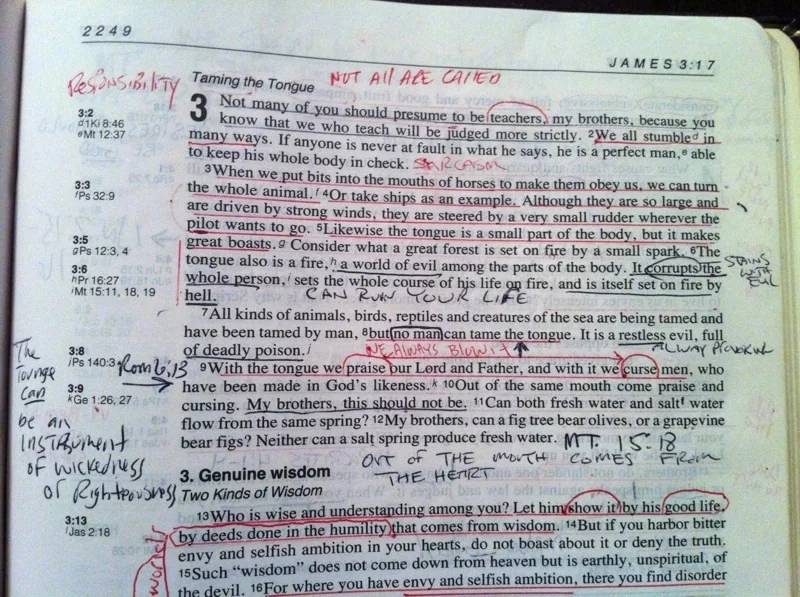 2249
JAMES 3:17
RESPONSIBILITY
Taming the Tongue
NOT All ARE CAllED
3 Not many of you should presume to be teachers, my brothers, because you
know that we who teach will be judged more strictly. 2We all stumbled in
many ways. If anyone is never at fault in what he says, he is a perfect man,e able
to keep his whole body in check. SARCASM
3When we put bits into the mouths of horses to make them obey us, we can turn
the whole animal.f 4Or take ships as an example. Although they are so large and
are driven by strong winds, they are steered by a very small rudder wherever the
pilot wants to go. 5Likewise the tongue is a small part of the body, but it makes
great boasts.g Consider what a great forest is set on fire by a small spark. 6The
tongue also is a fire,h a world of evil among the parts of the body. It corrupts the
whole person,i sets the whole course of his life on fire, and is itself set on fire by
hell.
STAINS
WITH
EVIL
CAN RUN YOUR LIFE
7All kinds of animals, birds, reptiles and creatures of the sea are being tamed and
have been tamed by man, 8but no man can tame the tongue. It is a restless evil, full
of deadly poison.j
WE ALWAYS BLOW IT
9With the tongue we praise our Lord and Father, and with it we curse men, who
have been made in God's likeness.k 10Out of the same mouth come praise and
cursing. My brothers, this should not be. 11Can both fresh water and saltl water
flow from the same spring? 12My brothers, can a fig tree bear olives, or a grapevine
bear figs? Neither can a salt spring produce fresh water. MT. 15:18
OUT OF THE MOUTH COMES FROM
THE HEART
3. Genuine wisdom
Two Kinds of Wisdom
13Who is wise and understanding among you? Let him show it by his good life,
by deeds done in the humility that comes from wisdom. 14But if you harbor bitter
envy and selfish ambition in your hearts, do not boast about it or deny the truth.
15Such "wisdom" does not come down from heaven but is earthly, unspiritual, of
the devil. 16For where you have envy and selfish ambition, there you find disorder
3:2
d1Ki 8:46
eMt 12:37
3:3
fPs 32:9
3:5
gPs 12:3, 4
3:6
hPr 16:27
iMt 15:11, 18, 19
3:8
jPs 140:3
Rom 6:13
3:9
kGe 1:26, 27
The
Tounge
Can
be an
INSTRUMENT
OF WICKEDNESS
OR RIGHTEOUSNESS
3:13
lJas 2:18